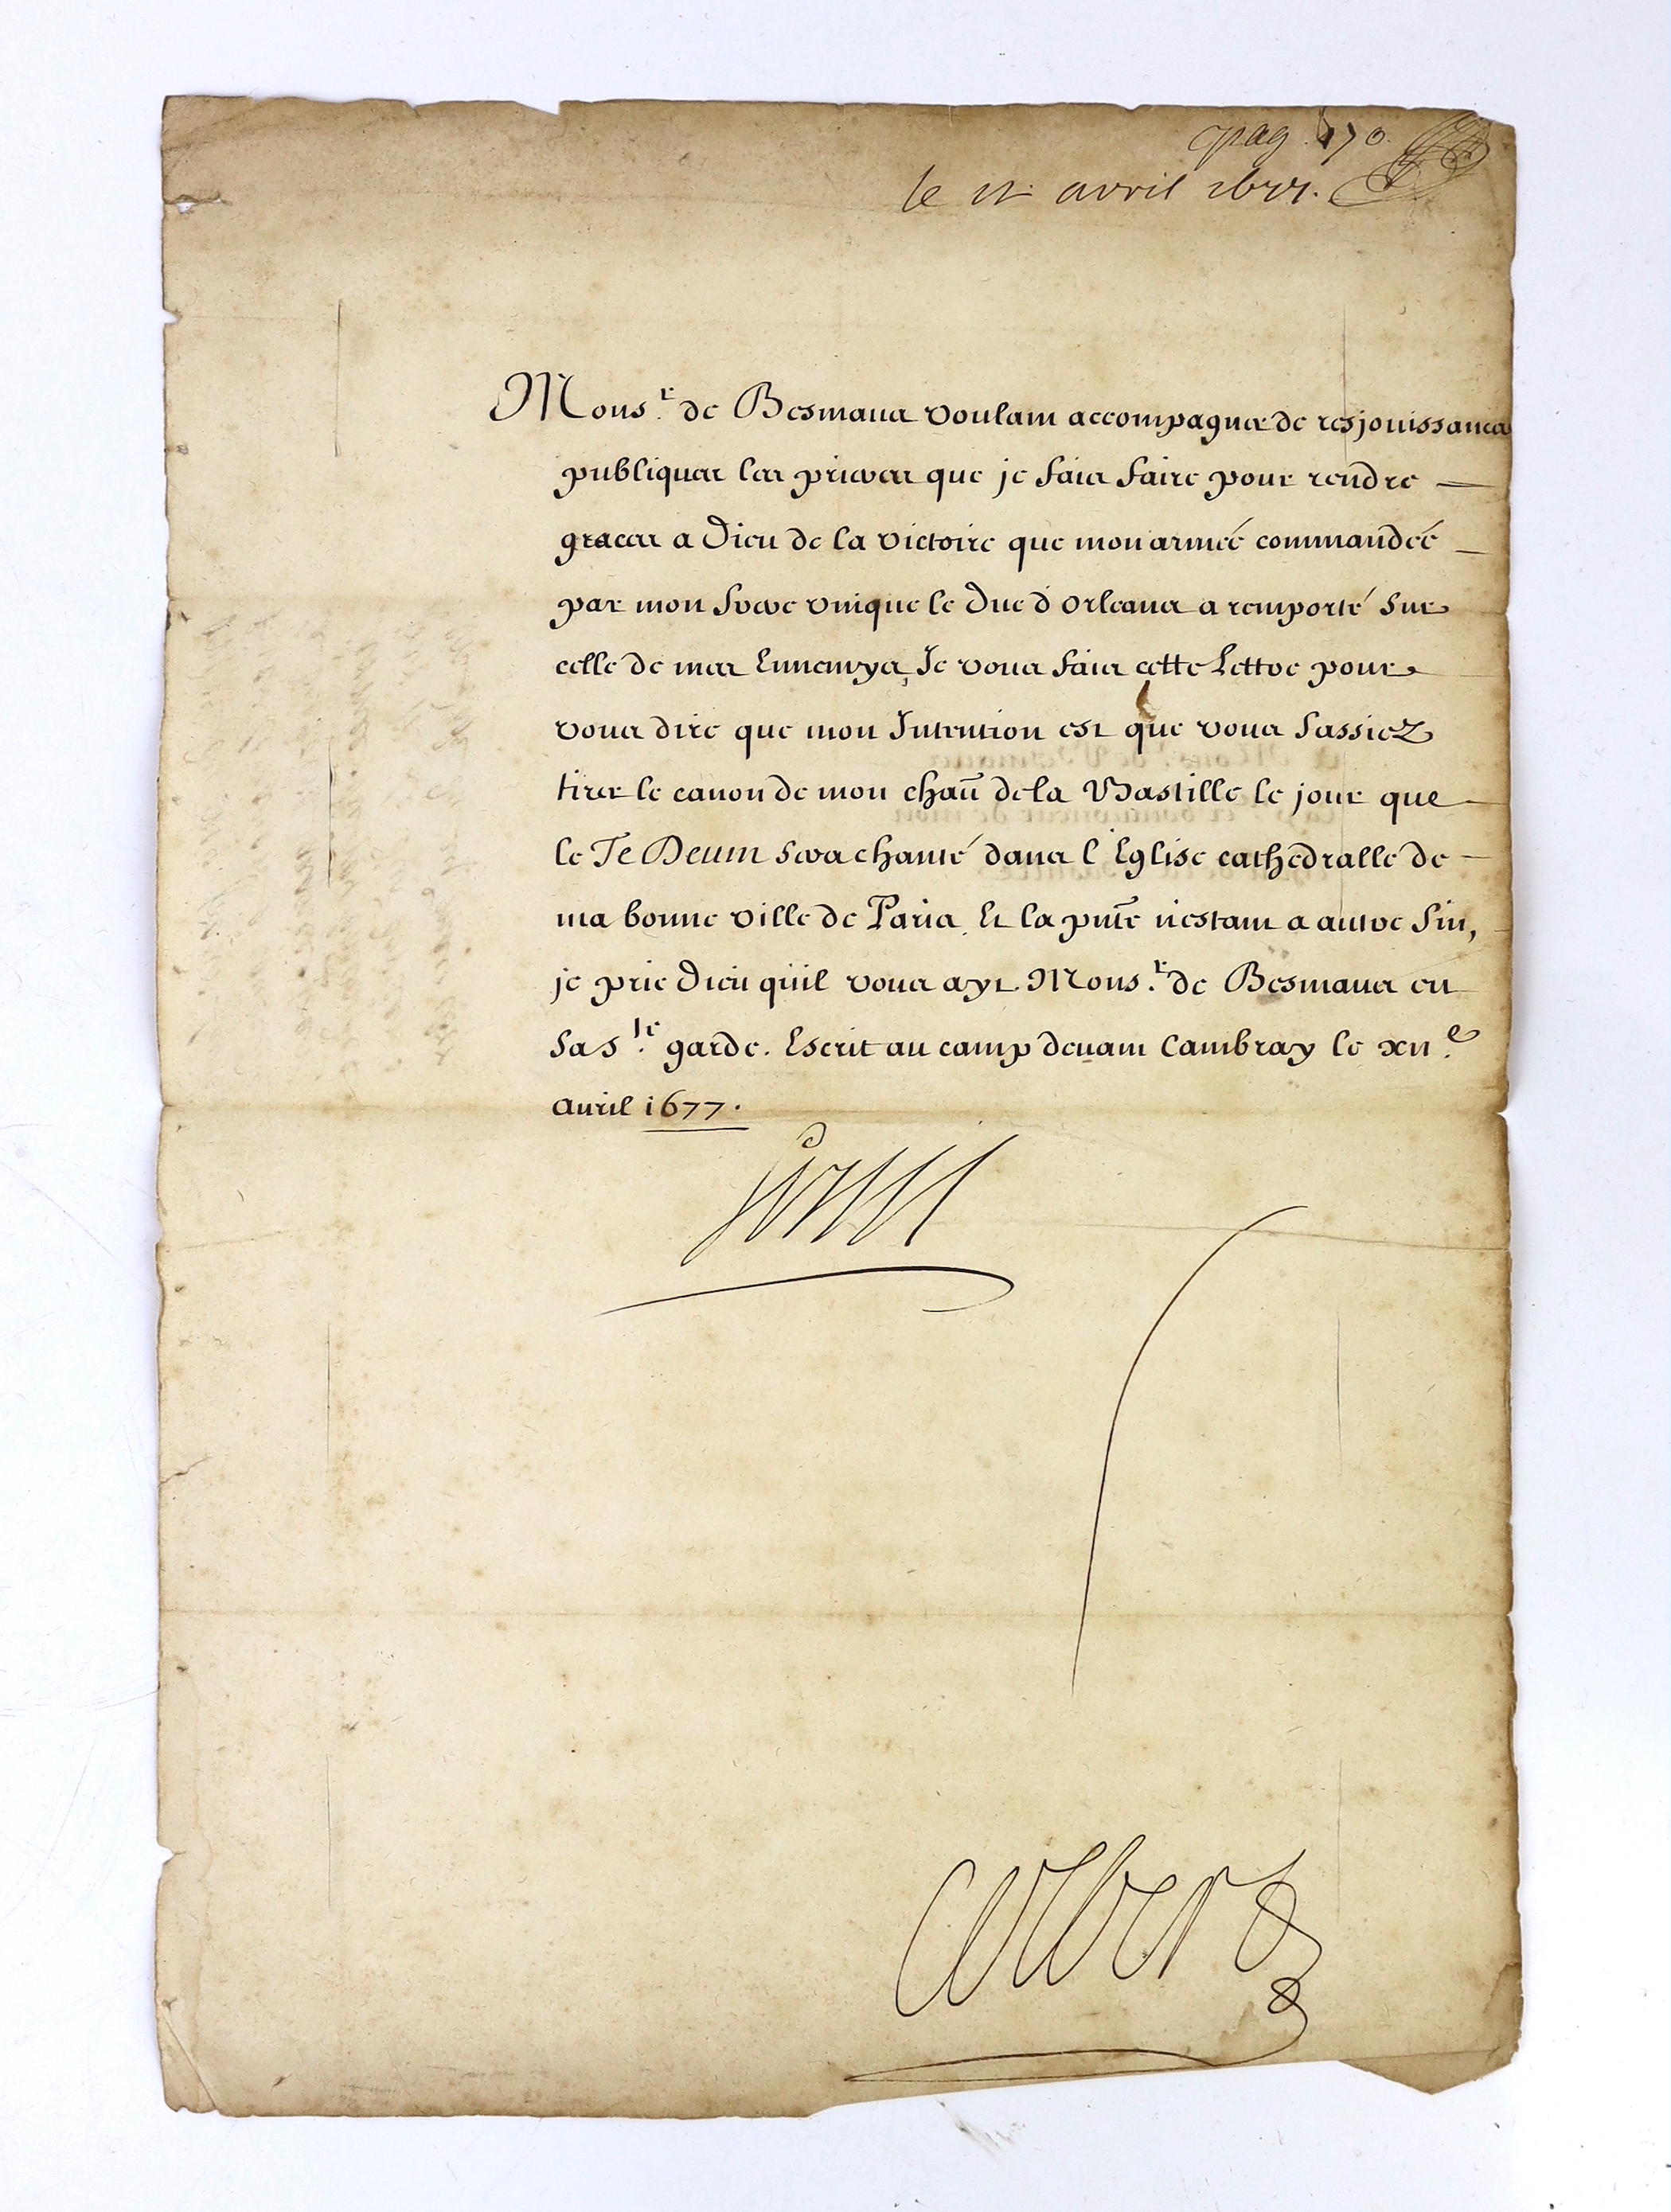 pag. 170.
le 12 avril 1677.
Mons.r de Besmaus voulant accompagner de resjouissances
publiques les prieres que je fais faire pour rendre
graces a Dieu de la victoire que mon armée commandée
par mon frere vnique le Duc d'Orleans a remporté sur
celle de mes Ennemys, Je vous fais cette Lettre pour
vous dire que mon Intention est que vous fassiez
tirer le canon de mon chaũ de la Bastille le jour que
le Te Deum sera chanté dans l'Eglise cathedralle de
ma bonne ville de Paris. Et la pñte n'estant a autre fin,
je prie Dieu qu'il vous ayt Mons.r de Besmaus en
sa s.te garde. Escrit au camp deuant Cambray le xii.e
Auril 1677.
Louis
Colbert